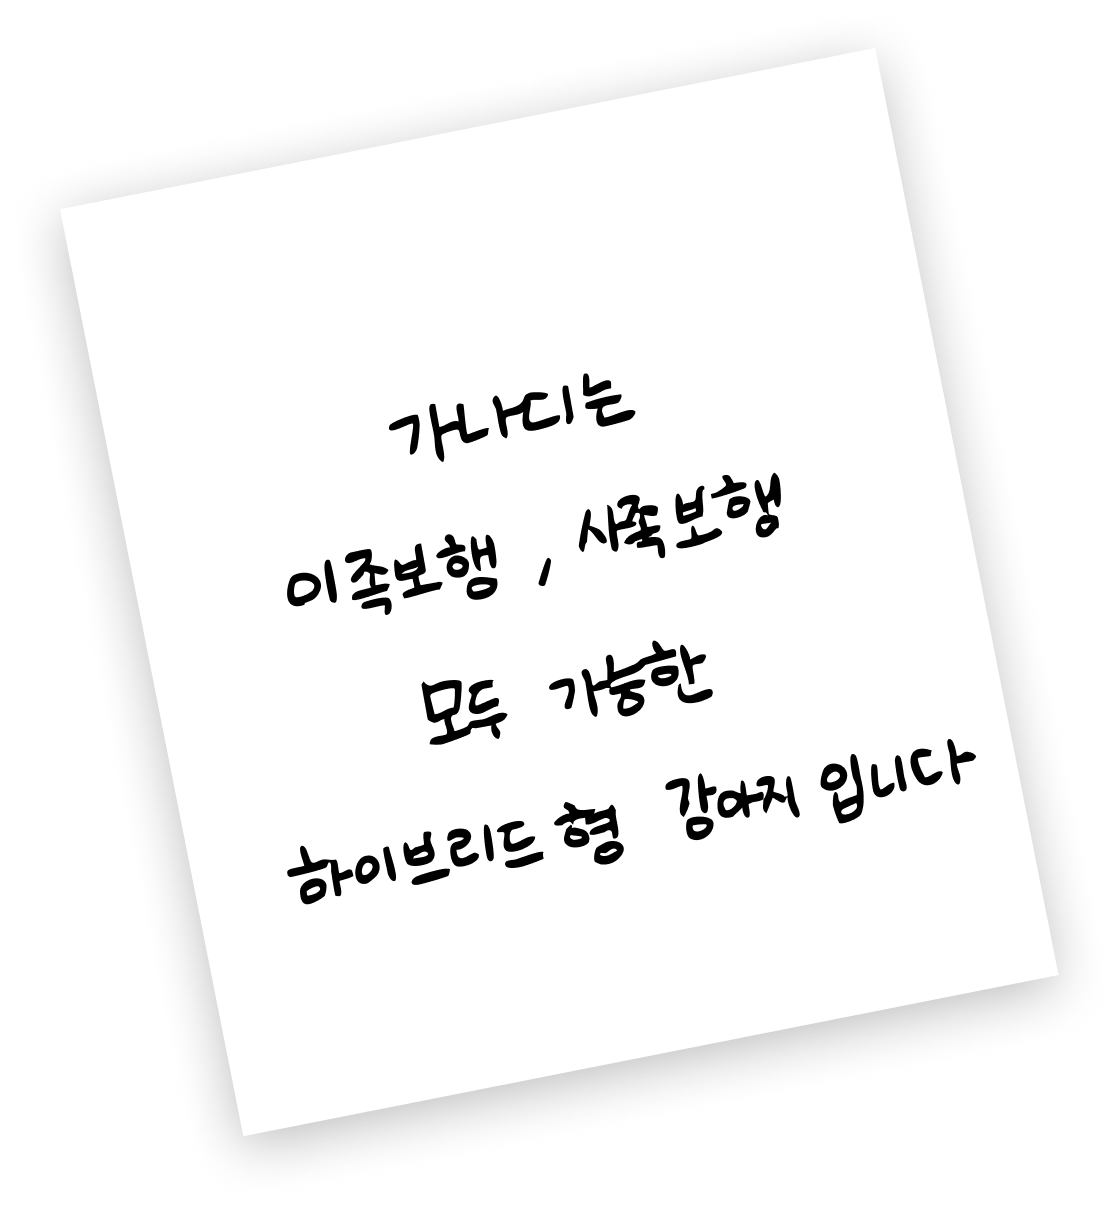 가나디는
이족보행, 사족보행
모두 가능한
하이브리드형 강아지 입니다